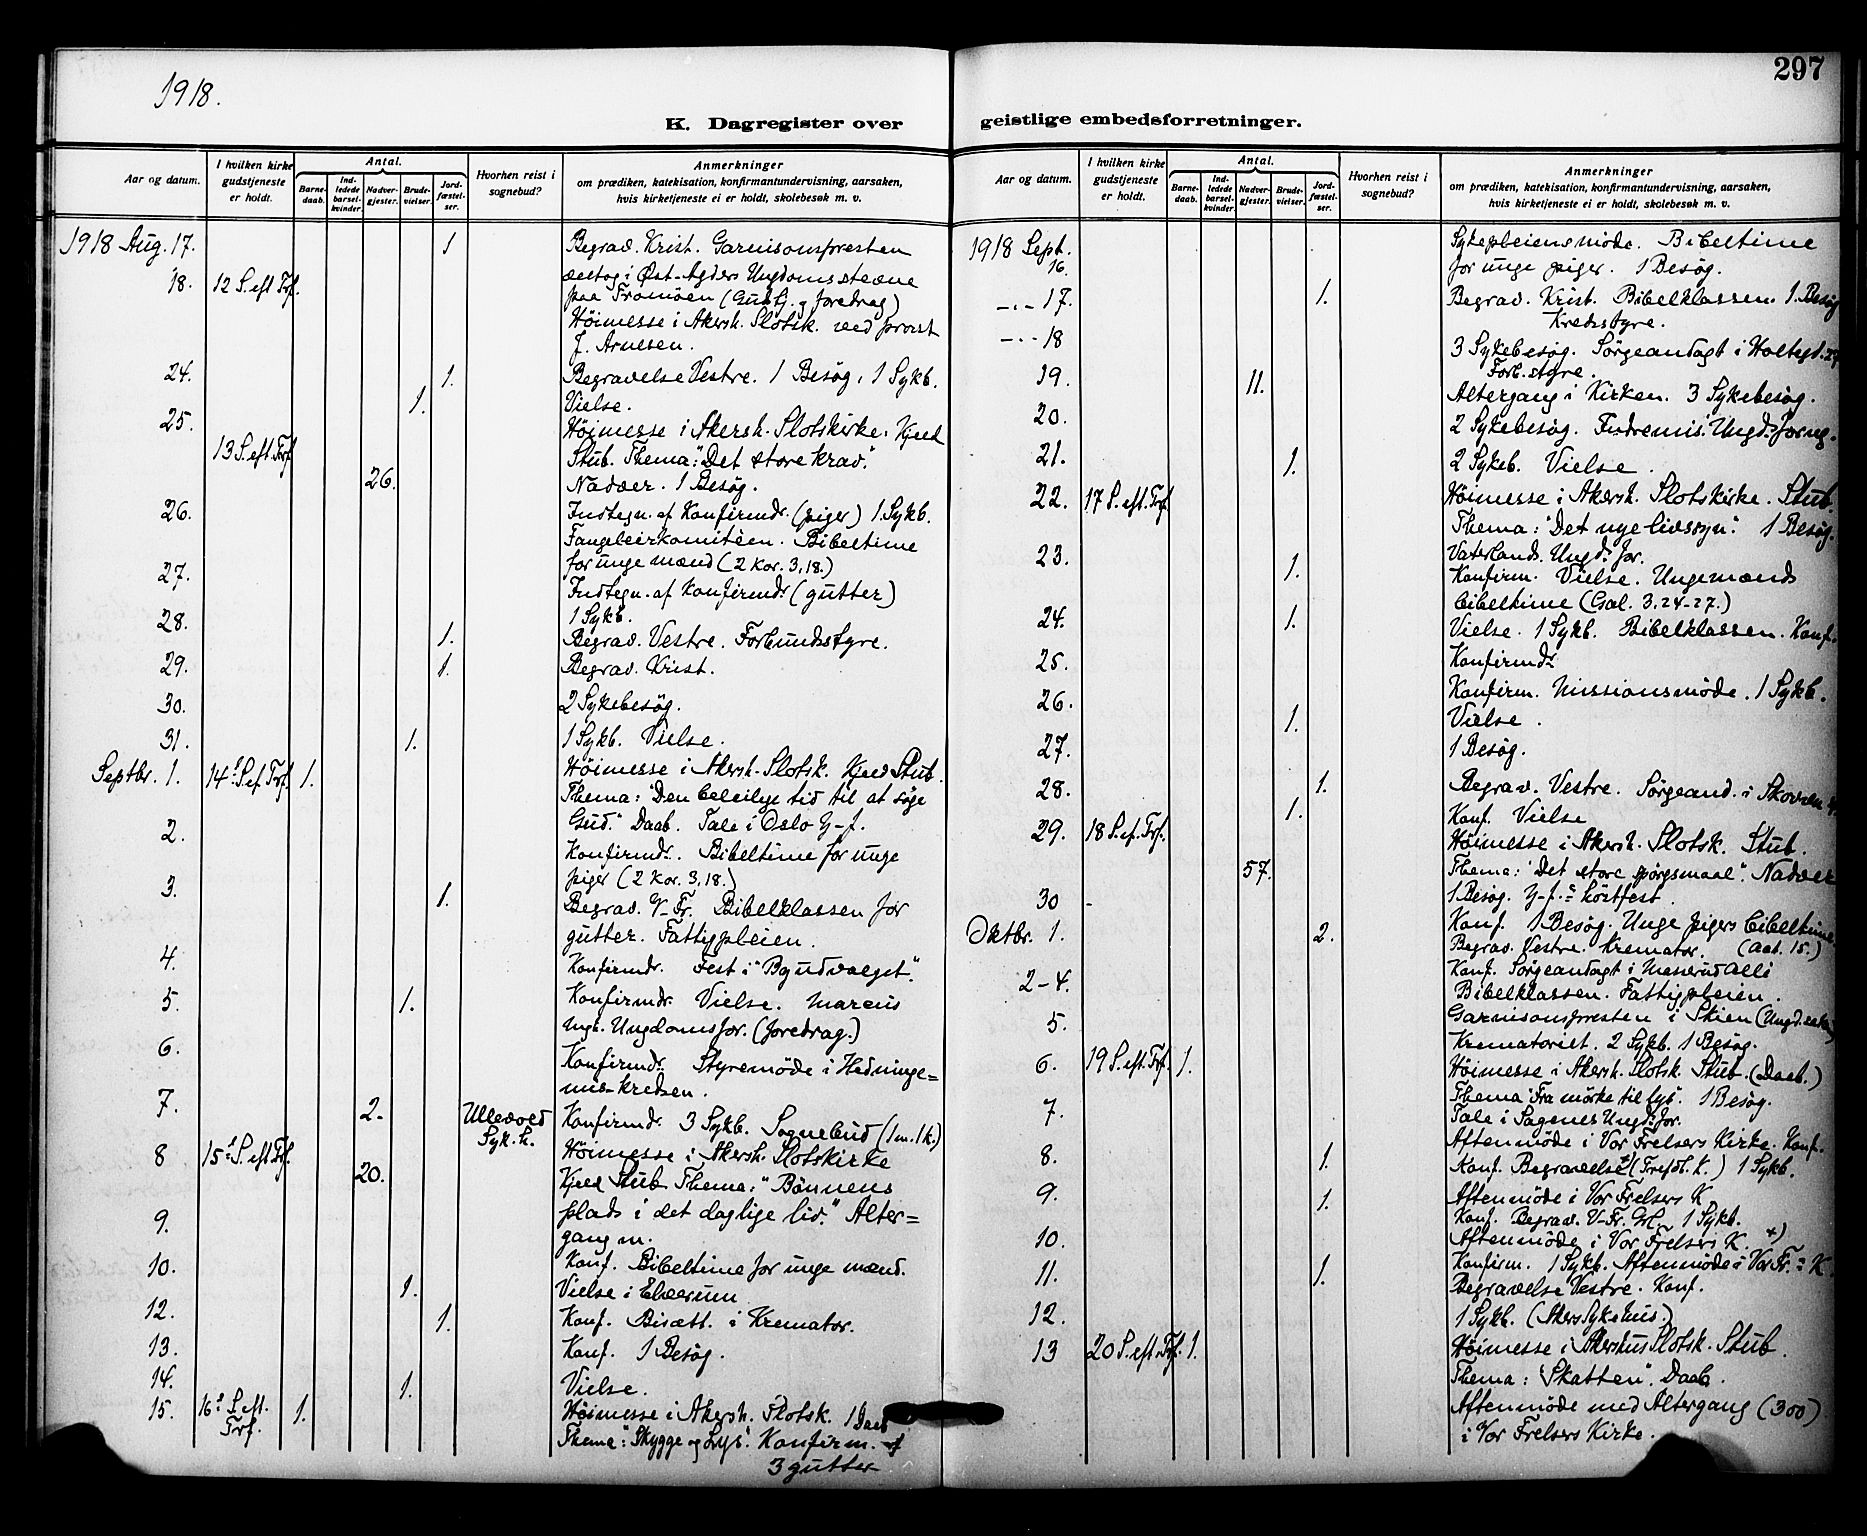 1918.
K. Dagregister over
Aar og datum.
I hvilken kirke gudstjeneste er holdt.
Antal.
Barne-daab.
Ind-ledede barsel-kvinder.
Nadver-gjester.
Brude-vielser.
Jord-fæstel-ser.
Hvorhen reist i sognebud?
Anmerkninger
om prædiken, katekisation, konfirmantundervisning, aarsaken,
hvis kirketjeneste ei er holdt, skolebesøk m. v.
1918 Aug. 17. 1 Begrav. Krist. Garnisonspresten
deltog i Øst-Agders Ungdomsstevne
18. 12 S. eft Trf. paa Tromöen (Gudstj. og foredrag)
Höimesse i Akersh. Slotsk. ved provst
J. Arnesen.
24. 1. Begravelse Vestre. 1 Besøg, 1 Sykb.
1. Vielse.
25. Höimesse i Akersh. Slotskirke. Kjeld
13 S. eft. Trf Stub. Thema: "Det store krav."
26. Nadver. 1 Besøg.
26. Indtegn. af Konfirmdr. (piger) 1 Sykb.
Fangeleirkomitéen. Bibeltime
for unge mænd (2 Kor. 3, 18.)
27. Indtegn. af Konfirmdr. (gutter)
1 Sykb.
28. 1. Begrav. Vestre. Forbundsstyre.
29. 1. Begrav. Krist.
30. 2 Sykebesøg.
31. 1. 1 Sykb. Vielse.
Septbr. 1. 14 S. ef. Trf. 1. Höimesse i Akersh. Slotsk. Kjeld Stub.
Thema: "Den beleilige tid til at søge
Gud." Daab. Tale i Oslo Y-f.
2. Konfirmdr. Bibeltime for unge
piger (2 Kor. 3, 18.)
3. 1. Begrav. V-Fr. Bibelklassen for
gutter. Fattigpleien.
4. Konfirmdr. Fest i "Byudvalget".
5. 1. Konfirmdr. Vielse. Marcus
Mgh. Ungdomsfor. (foredrag.)
6. Konfirmdr. Styremöde i Hedninge=
mis-kredsen.
7. 2- Ullevold Syk.h. Konfirmdr. 3 Sykb. Sognebud (1 m. 1 k.)
8 15 S. eft Trf. Höimesse i Akersh. Slotskirke
20. Kjeld Stub Thema: "Bönnens
plads i det daglige liv." Alter=
9. gang m.
Konf. Bibeltime for unge mænd.
10. 1. Vielse i Elverum
12. 1. Konf. Bisætt. i Kremator.
13. Konf. 1 Besøg.
14. 1. Vielse.
15. 16 S. eft. Trf. 1. Höimesse i Akersh. Slotsk. 1 Daab
Thema: "Skygge og Lys". Konfirm. af
3 gutter
297
geistlige embedsforretninger.
Aar og datum.
I hvilken kirke gudstjeneste er holdt.
Antal.
Barne-daab.
Ind-ledede barsel-kvinder.
Nadver-gjester.
Brude-vielser.
Jord-fæstel-ser.
Hvorhen reist i sognebud?
Anmerkninger
om prædiken, katekisation, konfirmantundervisning, aarsaken,
hvis kirketjeneste ei er holdt, skolebesøk m. v.
1918 Sept. 16. Sykepleiensmöde. Bibeltime
for unge piger. 1 Besøg.
-.- 17. 1. Begrav. Krist. Bibelklassen. 1. Besøg
Kredsstyre.
-.- 18 3 Sykebesøg. Sörgeandagt i Holtegd. 24
Forb. styre.
19. 11. Altergang i Kirken. 3 Sykebesøg.
20. 2 Sykebesøg. Indremis. Ungd. foren.
21. 1. 2 Sykeb. Vielse.
22. 17 S. eft. Trf. Höimesse i Akersh. Slotskirke. Stub.
Thema: "Det nye livssyn". 1 Besøg.
Vaterlands Ungd. for.
23. 1. Konfirm. Vielse. Ungemænds
bibeltime (Gal. 3, 24-27.)
24. 1. Vielse. 1 Sykb. Bibelklassen. Konf.
25. Konfirmdr.
26. Konfirm. Missionsmöde. 1 Sykb.
1. Vielse.
27. 1 Besøg.
28. 1. Begrav. Vestre. Sörgeand. i Skovveien
1. Konf. Vielse
29. 18 S. ef. Trf. Höimesse i Akersh. Slotsk. Stub.
57. Thema: "Det store spörgsmaal". Nadver
1 Besøg. Y-f. höstfest.
30 - Konf. 1 Besøg. Unge pigers bibeltime
Oktbr. 1. 2. Begrav. Vestre. Kremator. (Aab. 15.)
Konf. Sörgeandagt i Messerud Allé
2-4. Bibelklassen. Fattigpleien.
Garnisonspresten i Skien (Ungd.
5. Krematoriet. 2 Sykb. 1 Besøg.
6. 19 S. eft. Trf. 1. Höimesse i Akersh. Slotsk. Stub. (Daab.)
Thema "Fra mörke til lys". 1 Besøg.
7. Tale i Sagenes Ungd. for.
Aftenmöde i Vor Frelsers Kirke. Konf.
8. 1. Konf. Begravelse (Trefold. K.) 1 Sykb.
Aftenmöde i Vor Frelsers K.
9. 1. Konf. Begrav. V-Fr. Grl. 1 Sykb.
Aftenmöde i Vor Frelsers K. +)
10. Konfirm. 1 Sykb. Aftenmöde i Vor Fr. K.
11. 1. Begravelse Vestre. Konf.
12. 1 Sykb. (Akers Sykehus.)
13 20 S. eft. Trf. 1. Höimesse i Akershus Slotsk. Stub.
Thema: "Skatten". Daab.
Aftenmöde med Altergang (300)
i Vor Frelsers Kirke.